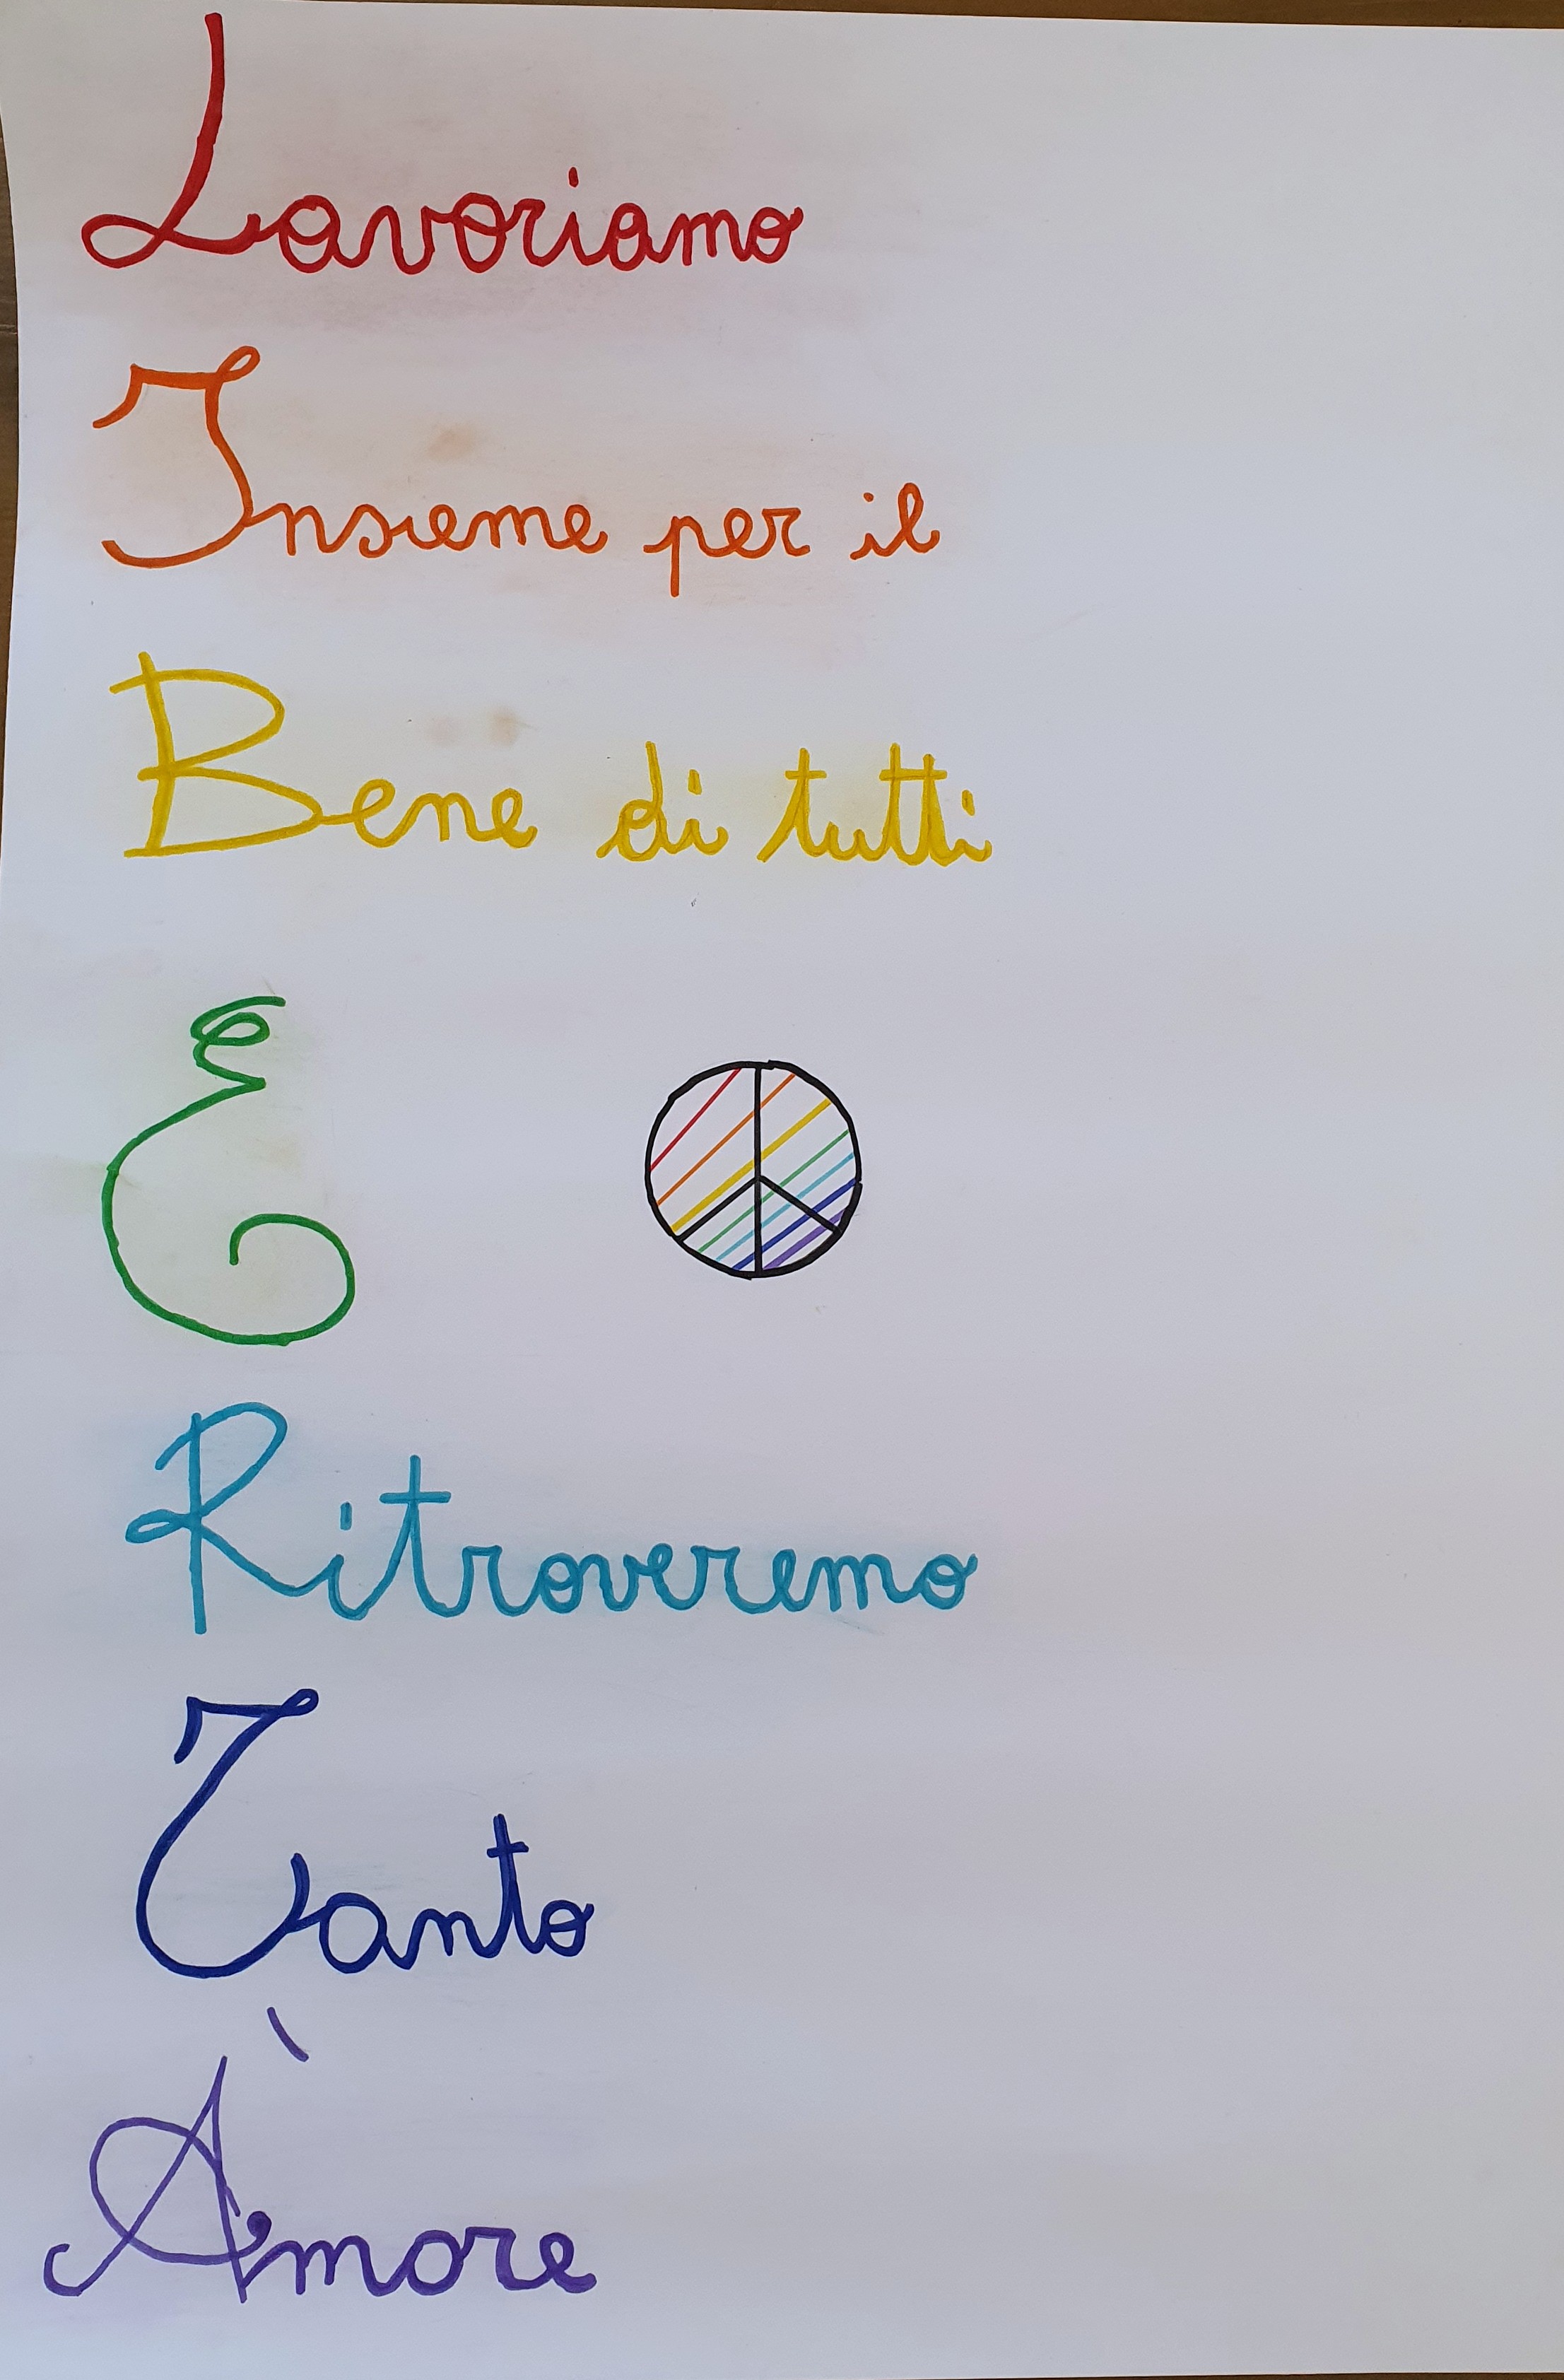 Lavoriamo
Insieme per il
Bene di tutti
E
Ritroveremo
Tanto
Àmore